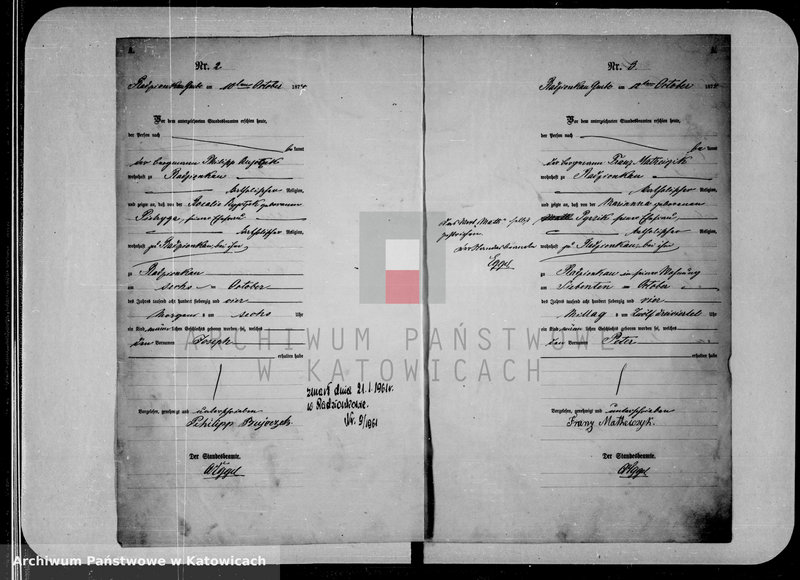 A.
Nr. 2
Radzionkau Gutsb. am 10ten October 1874
Vor dem unterzeichneten Standesbeamten erschien heute,
der Person nach
be kannt
der Bergmann Philipp
wohnhaft zu Radzionkau
katholischer Religion,
und zeigte an, daß von der Rosalie geborenen
seine Ehefrau
katholischer Religion,
wohnhaft zu Radzionkau, bei ihm
zu Radzionkau
am sechs October
des Jahres tausend acht hundert siebenzig und vier
Morgens um sechs Uhr
ein Kind männlichen Geschlechts geboren worden sei, welches
den Vornamen Joseph
erhalten habe
Vorgelesen, genehmigt und unterschrieben
Philipp
Der Standesbeamte.
zmarł dnia 21.1.1961r.
w Radzionkowie.
Nr. 9/1961
A.
Nr. 3.
Radzionkau Gutsb. am 12ten October 1874
Vor dem unterzeichneten Standesbeamten erschien heute,
der Person nach
be kannt
der Bergmann Franz Mathejczyk
wohnhaft zu Radzionkau
katholischer Religion,
und zeigte an, daß von der Marianne geborenen
seine Ehefrau
katholischer Religion,
wohnhaft zu Radzionkau, bei ihm
zu Radzionkau in seiner Wohnung
am Siebenten October
des Jahres tausend acht hundert siebenzig und vier
Mittag um Zwölf dreiviertel Uhr
ein Kind männlichen Geschlechts geboren worden sei, welches
den Vornamen Peter
erhalten habe
Vorgelesen, genehmigt und unterschrieben
Franz
Der Standesbeamte.
Das Wort
gestrichen
Der Standesbeamte
ARCHIWUM PAŃSTWOWE
W KATOWICACH
Archiwum Państwowe w Katowicach